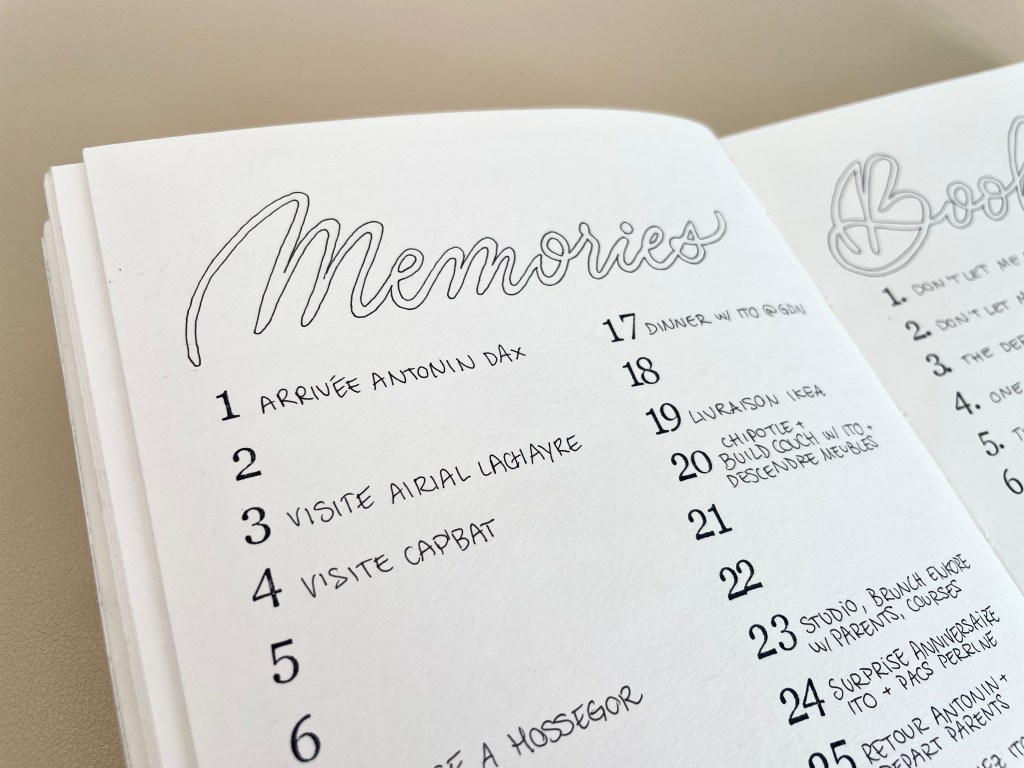 Memories
1 ARRIVÉE ANTONIN DAX
2
3 VISITE AIRIAL LAGHAYRE
4 VISITE CAP'BAT
5
6
A HOSSEGOR
17 DINNER W/ ITO @GDN
18
19 LIVRAISON IKEA
20 CHIPOTLE +
BUILD COUCH W/ ITO +
DESCENDRE MEUBLES
21
22
23 STUDIO, BRUNCH ENCORE
W/ PARENTS, COURSES
24 SURPRISE ANNIVERSAIRE
ITO + PACS PERRINE
25 RETOUR ANTONIN +
DEPART PARENTS
1. DON'T LET ME
2. DON'T LET
3. THE
4. ONE
5.
6